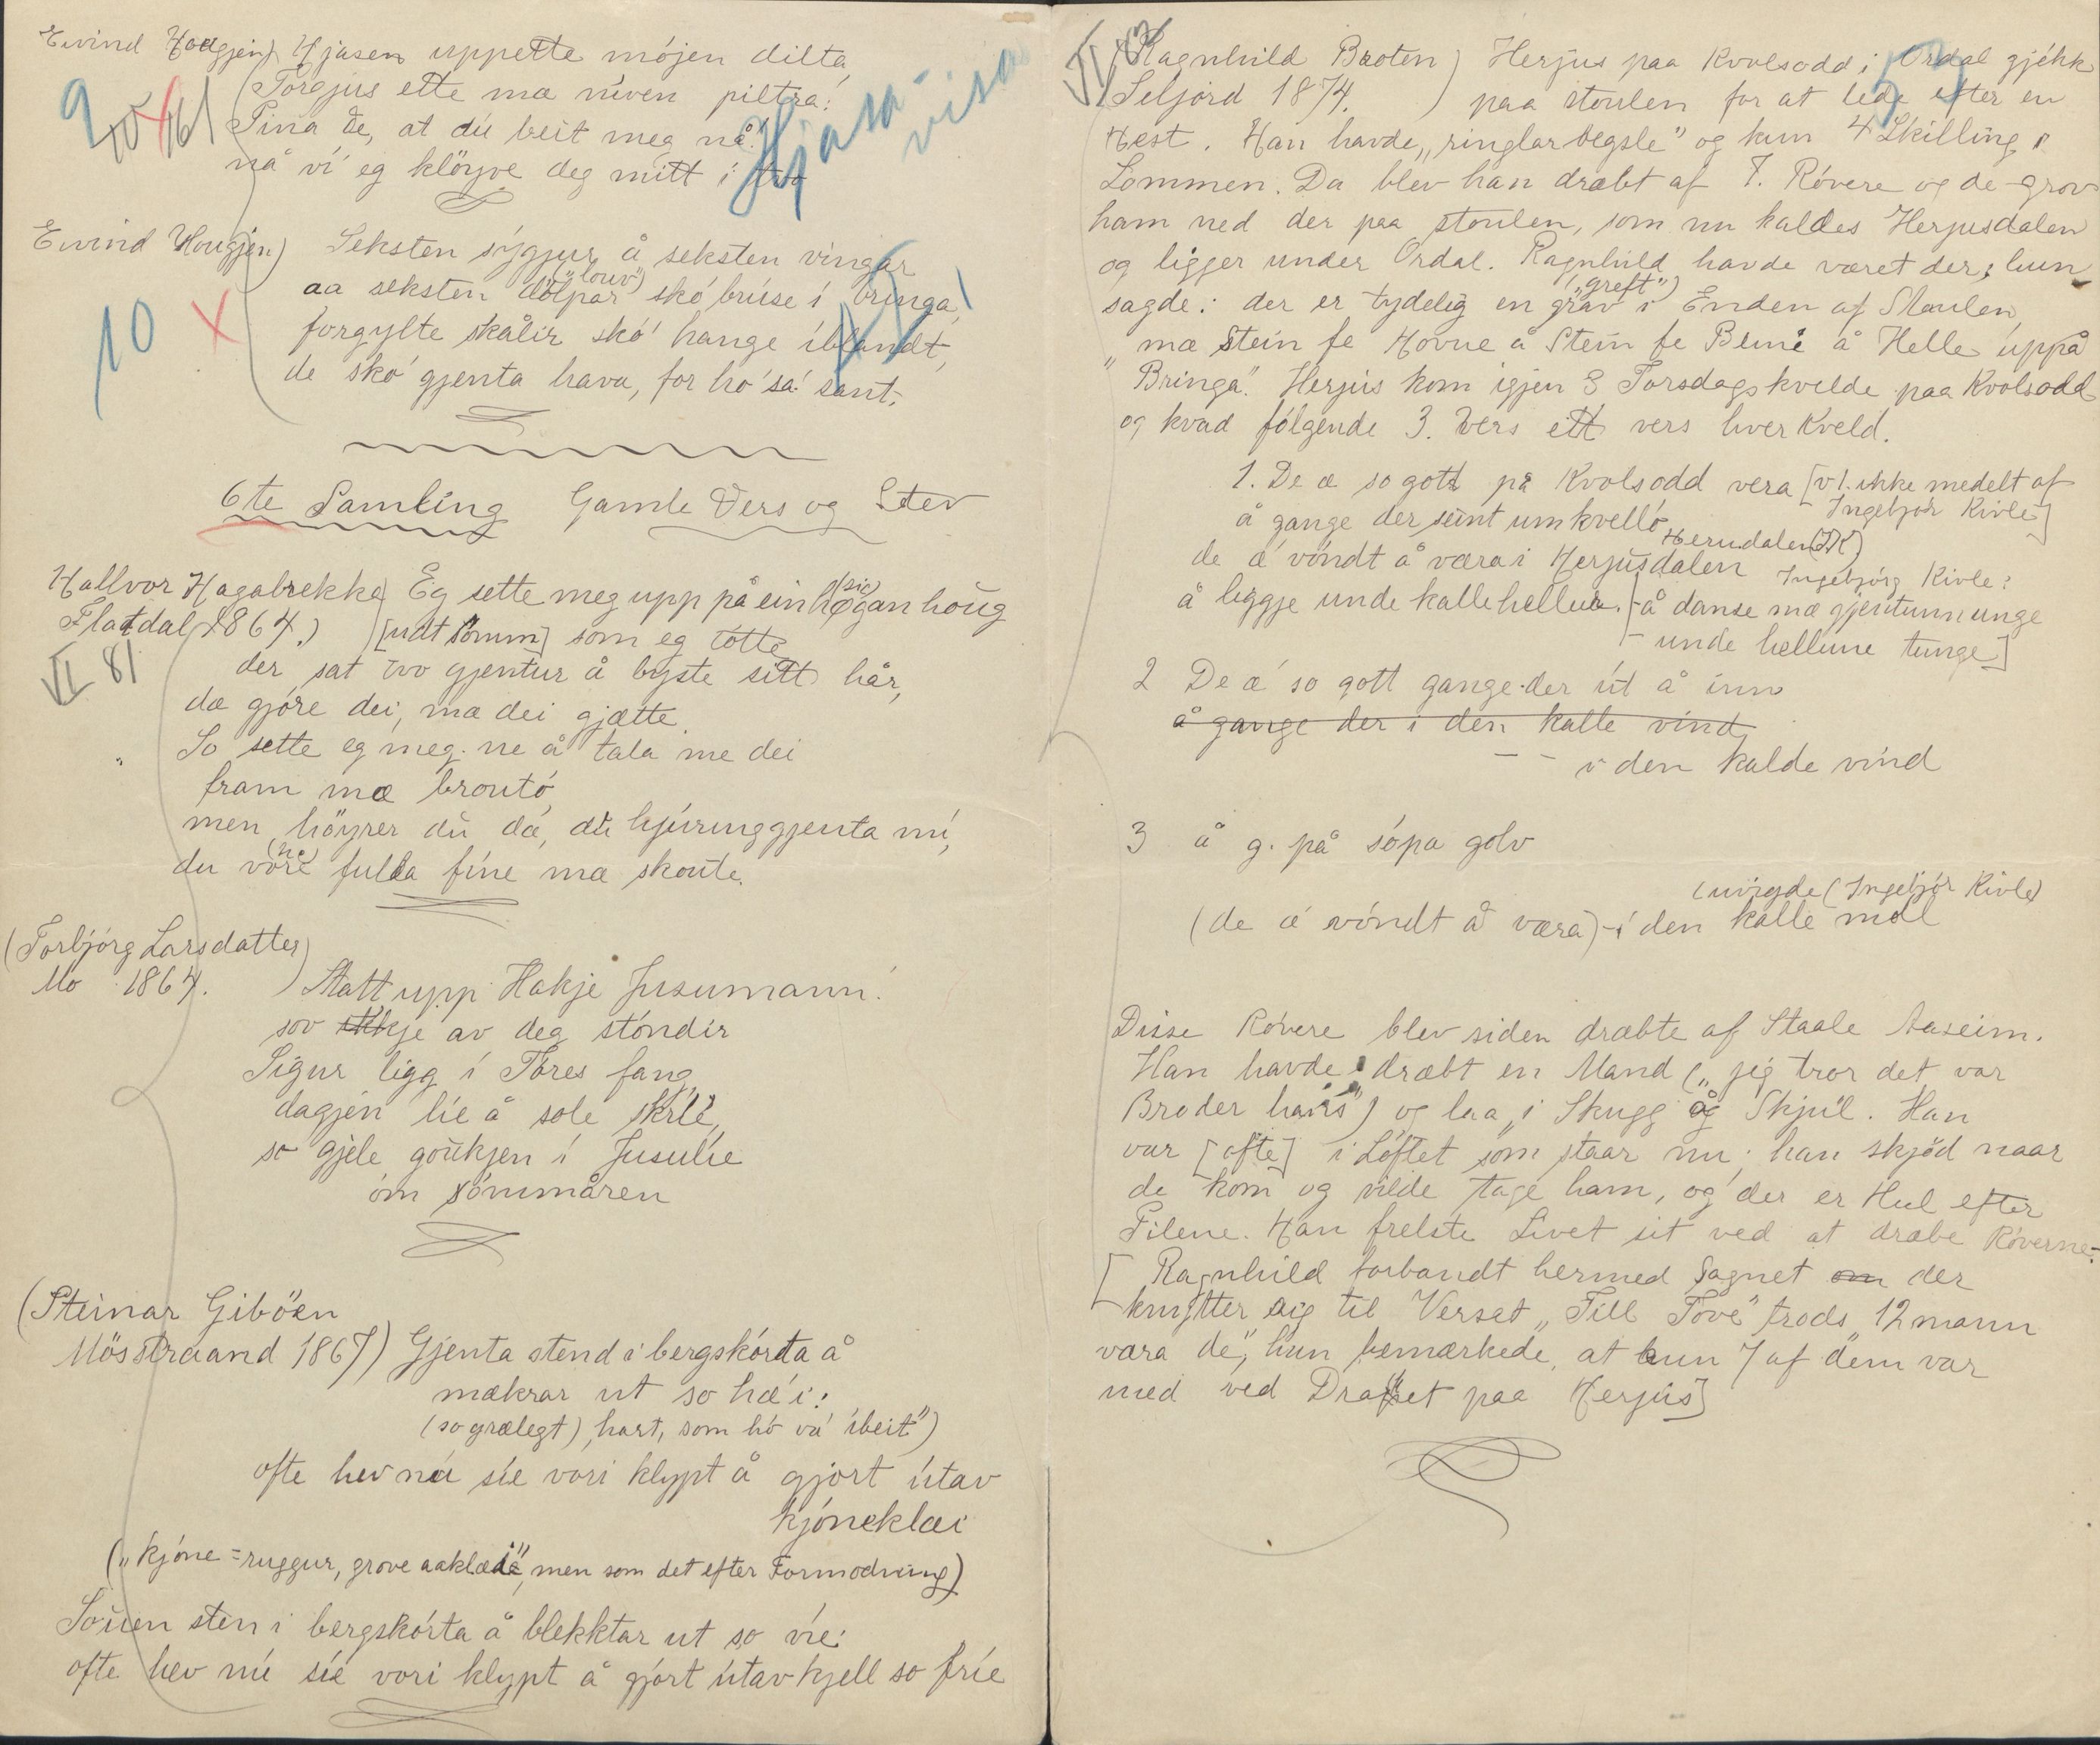 Eivind Hougjen) Hjasen uppette möjen dilta,
(Torgjus ette mæ niven piltra:
Pina de, at du beit meg nå!
nå vi' eg klöyve deg mitt i två
9
161
Hjasa-
visa
Eivind Hougjen) Seksten sygjur å seksten vingar
("louv")
aa seksten dolpar sko' bruse i bringa,
forgylte skålir sko' hange iblandt,
de sko' gjenta hava, for ho sa' sant.
10 X
6te Samling Gamle Vers og Stev
Hallvor Hagabrekke) Eg sette meg upp på ein högan houg
(sic)
Flatdal 1864.) [udt tomm] som eg totte
VI 81
der sat tvo gjentur å byste sitt hår,
dæ gjöre dei, mæ dei gjætte.
So sette eg meg ne å tala me dei
fram mæ broutó,
men höyrer du dá, du hjuringgjenta mi,
(ne)
du vore fulla fine mæ skoute.
(Torbjörg Larsdatter)
Mo 1864.) Statt upp Hakje Jusumann!
sov ikkje av deg stóndir
Sigur ligg i Tores fang,
dagjen lie å sole skrie,
so gjele goukjen i Jusulie
om sommåren
(Steinar Giböen
Mösstraand 1867) Gjenta stend i bergskórta å
mækrar ut so hæ'i:
(so grælegt), hart, som hó va' ibeit")
ofte hev nu sie vori klypt å gjort útav
kjóneklæi
("kjóne = ruggur, grove aaklæde", men som det efter Formodning)
Souen sten i bergskórta å blekktar ut so vie:
ofte hev nú síe vori klypt å gjórt útav kjell so fríe
VI 82
57
(Ragnhild Broten) Herjus paa Kvolsodd i Ordal gjékk
Seljord 1874.) paa stoulen for at lede efter en
Hest. Han havde "ringlarbegsle" og kun 4 Skilling i
Lommen. Da blev han dræbt af 7. Rövere og de grov
ham ned der paa stoulen, som nu kaldes Herjusdalen
og ligger under Ordal. Ragnhild havde været der; hun
("greft")
sagde: der er tydelig en grav i Enden af Stoulen,
"mæ stein fe Hovue å Stein fe Beine å Helle uppå
Bringa". Herjus kom igjen 3 Torsdagskvelde paa Kvolsodd
og kvad fölgende 3. vers ett vers hver Kveld.
1. De æ so gott på Kvolsodd vera [v 1. ikke medelt af
Ingebjör Kivle]
å gange der seint um kvelló
Herudalen (IK)
de æ' vóndt å væra i Herjusdalen
Ingebjörg Kivle:
å liggje unde kalle helluu. [- å danse mæ gjentunn unge
- unde hellune tunge]
2 De æ' so gott gange der út å inn
å gange der i den kalle vind
– – i den kalde vind
3 å g. på sópa golv
(uvigde (Ingebjör Kivle)
(de æ vóndt å væra) – i den kalle moll
Disse Rövere blev siden dræbte af Staale Aaseim.
Han havde dræbt en Mand ("jeg tror det var
Broder hans") og laa "i Skugg og Skjul. Han
var [ofte] i Loftet som staar nu; han skjöd naar
de kom og vilde tage ham, og der er Hul efter
Pilene. Han frelste Livet sit ved at dræbe Röverne.
[Ragnhild forbandt hermed Sagnet om der
knytter sig til Verset "Till Tove" trods "12 mann
vara de", hun bemærkede, at kun 7 af dem var
med ved Drapet paa Herjus]